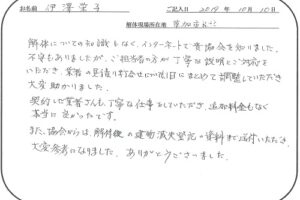 お名前 伊澤 栄子 ご記入日 2019年10月10日
解体現場所在地 草加市
解体についての知識もなく、インターネットで貴協会を知りました。
不安もありましたが、ご担当者の方が丁寧な説明とご対応を
いただき、業者の見積り打合せについて1日にまとめて調整していただき
大変助かりました。
契約した業者さんも、丁寧な仕事をしていただき、追加料金もなく
本当に良かったです。
また、協会からは、解体後の建物滅失登記の資料まで送付いただき、
大変参考になりました。ありがとうございました。